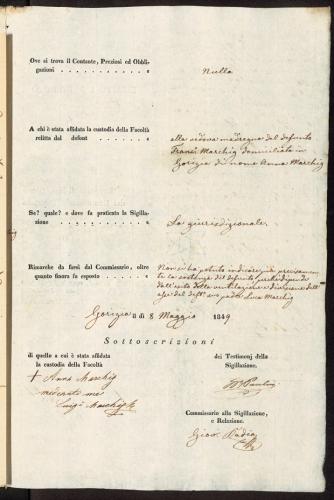 Ove si trova il Contante, Preziosi ed Obbligazioni . . . . . . . . . . . « Nulla
A chi è stata affidata la custodia della Facoltà relitta dal defont . . . . . . . . « alla vedova madregna del defunto
Franc. Marchig domiciliata in
Gorizia di nome Anna Marchig
Se? quale? e dove fu praticata la Sigillazione . . . . . . . . . . . « La giurisdizionale.
Rimarche da farsi dal Commissario, oltre quanto finora fu esposto . . . . . . « Non si ha potuto indicare più precisamente la sostanza del defunto
dall'esito della ventilazione e divisione dell'
padre Luca Marchig
Gorizia il dì 8 Maggio 1849
Sottoscrizioni
di quello a cui è stata affidata
la custodia della Facoltà
+ Anna Marchig
mediante me
Luigi Marchig
dei Testimonj della
Sigillazione.
Commissario alla Sigillazione,
e Relazione.
Giov.